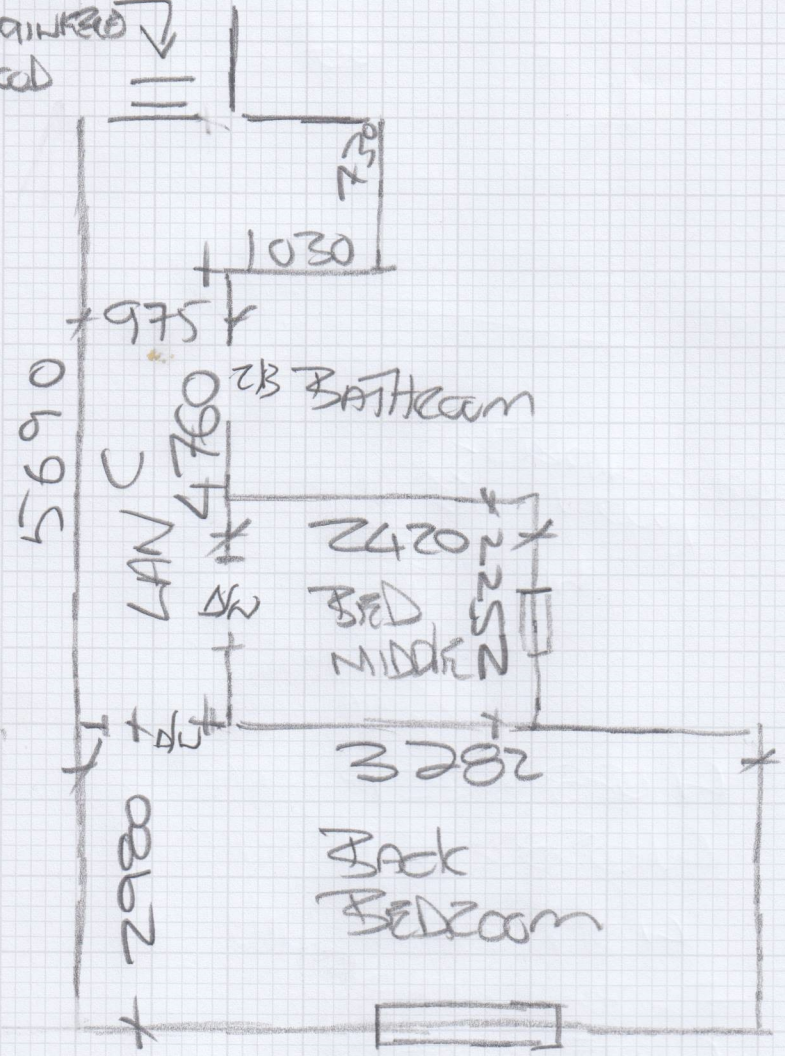 730
1030
975
5690
4760
BATHROOM
LAN C
2420
2252
D/W
BED
MIDDLE
D/W
3282
2980
BACK
BEDROOM